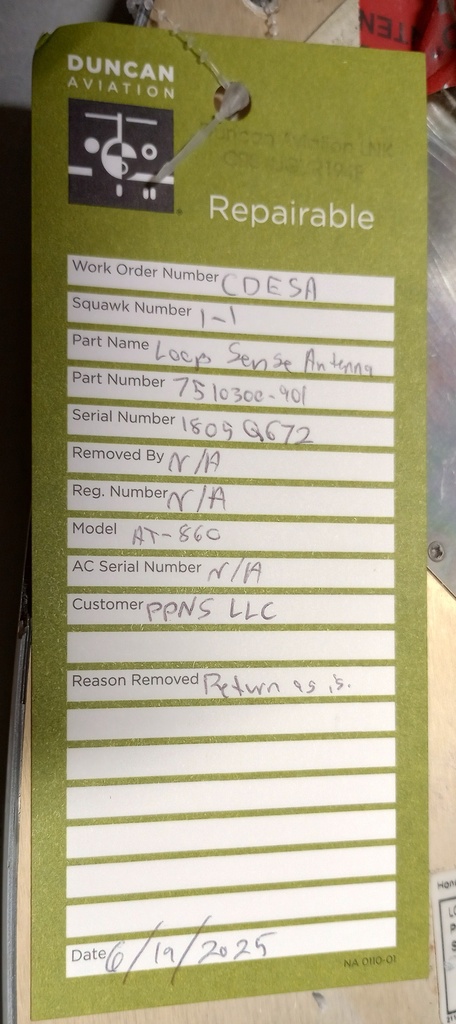 DUNCAN
AVIATION
Repairable
Work Order Number CDESA
Squawk Number 1-1
Part Name Loop Sense Antenna
Part Number 7510300-901
Serial Number 1809Q672
Removed By N/A
Reg. Number N/A
Model AT-860
AC Serial Number N/A
Customer PPNS LLC
Reason Removed Return as is.
Date 6/19/2025
NA 0110-01